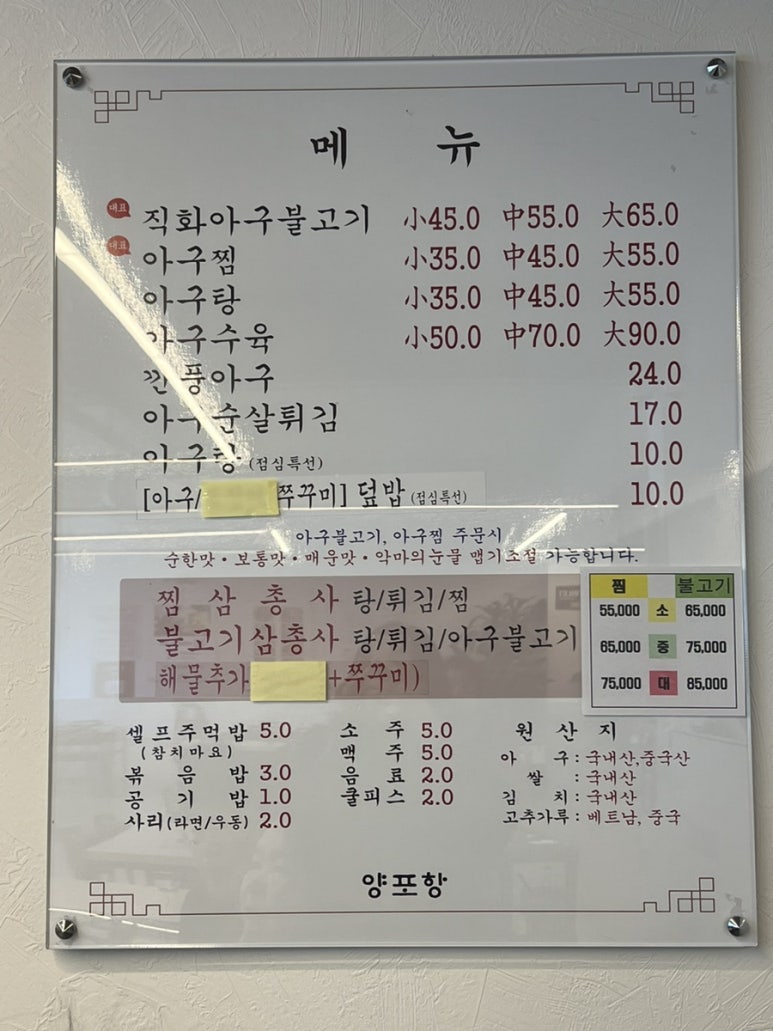 메 뉴
대표 직화아구불고기 小45.0 中55.0 大65.0
대표 아구찜 小35.0 中45.0 大55.0
아구탕 小35.0 中45.0 大55.0
아구수육 小50.0 中70.0 大90.0
깐풍아구 24.0
아구순살튀김 17.0
아구탕 (점심특선) 10.0
[아구/ 쭈꾸미] 덮밥 (점심특선) 10.0
아구불고기, 아구찜 주문시
순한맛 · 보통맛 · 매운맛 · 악마의눈물 맵기조절 가능합니다.
찜 삼 총 사 탕/튀김/찜
불고기삼총사 탕/튀김/아구불고기
해물추가 +쭈꾸미)
찜 불고기
55,000 소 65,000
65,000 중 75,000
75,000 대 85,000
셀프주먹밥 5.0
(참치마요)
볶 음 밥 3.0
공 기 밥 1.0
사리(라면/우동) 2.0
소 주 5.0
맥 주 5.0
음 료 2.0
쿨피스 2.0
원 산 지
아 구 : 국내산,중국산
쌀 : 국내산
김 치 : 국내산
고추가루 : 베트남, 중국
양포항